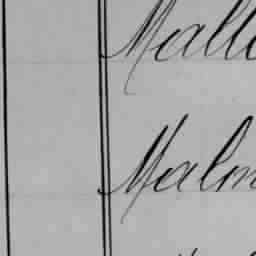 Mall
Malm